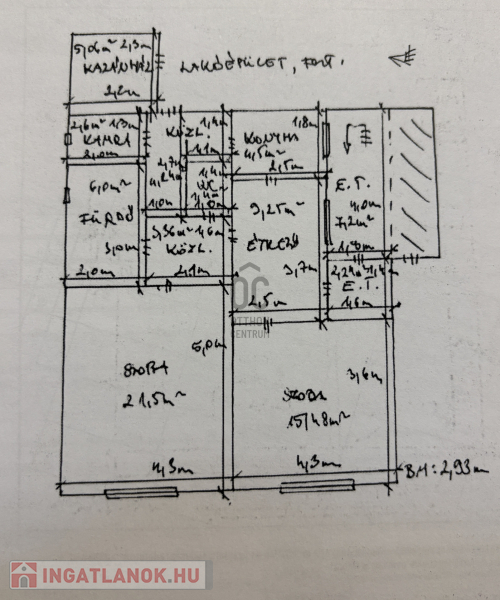 5,06m² 2,3m
KAZÁNHÁZ
2,2m
LAKÓÉPÜLET, FSZT.
2,6m² 1,3m
KAMRA
2,0m
KÖZL.
1,4m
1,1m
2,7m
4,24m²
1,0m
1,4m
WC
1,4m²
1,0m
KONYHA
1,8m
4,5m²
2,5m
6,0m²
FÜRDŐ
3,0m
2,0m
3,36m² 1,6m
KÖZL.
2,1m
9,25m²
ÉTKEZŐ
3,7m
2,5m
E.T.
4,0m
7,2m²
1,8m
2,24m² 1,4m
E.T.
1,6m
OC
OTTHON
CENTRUM
SZOBA
21,5m²
5,0m
4,3m
SZOBA
15,48m²
3,6m
4,3m
BM: 2,93m
INGATLANOK.HU